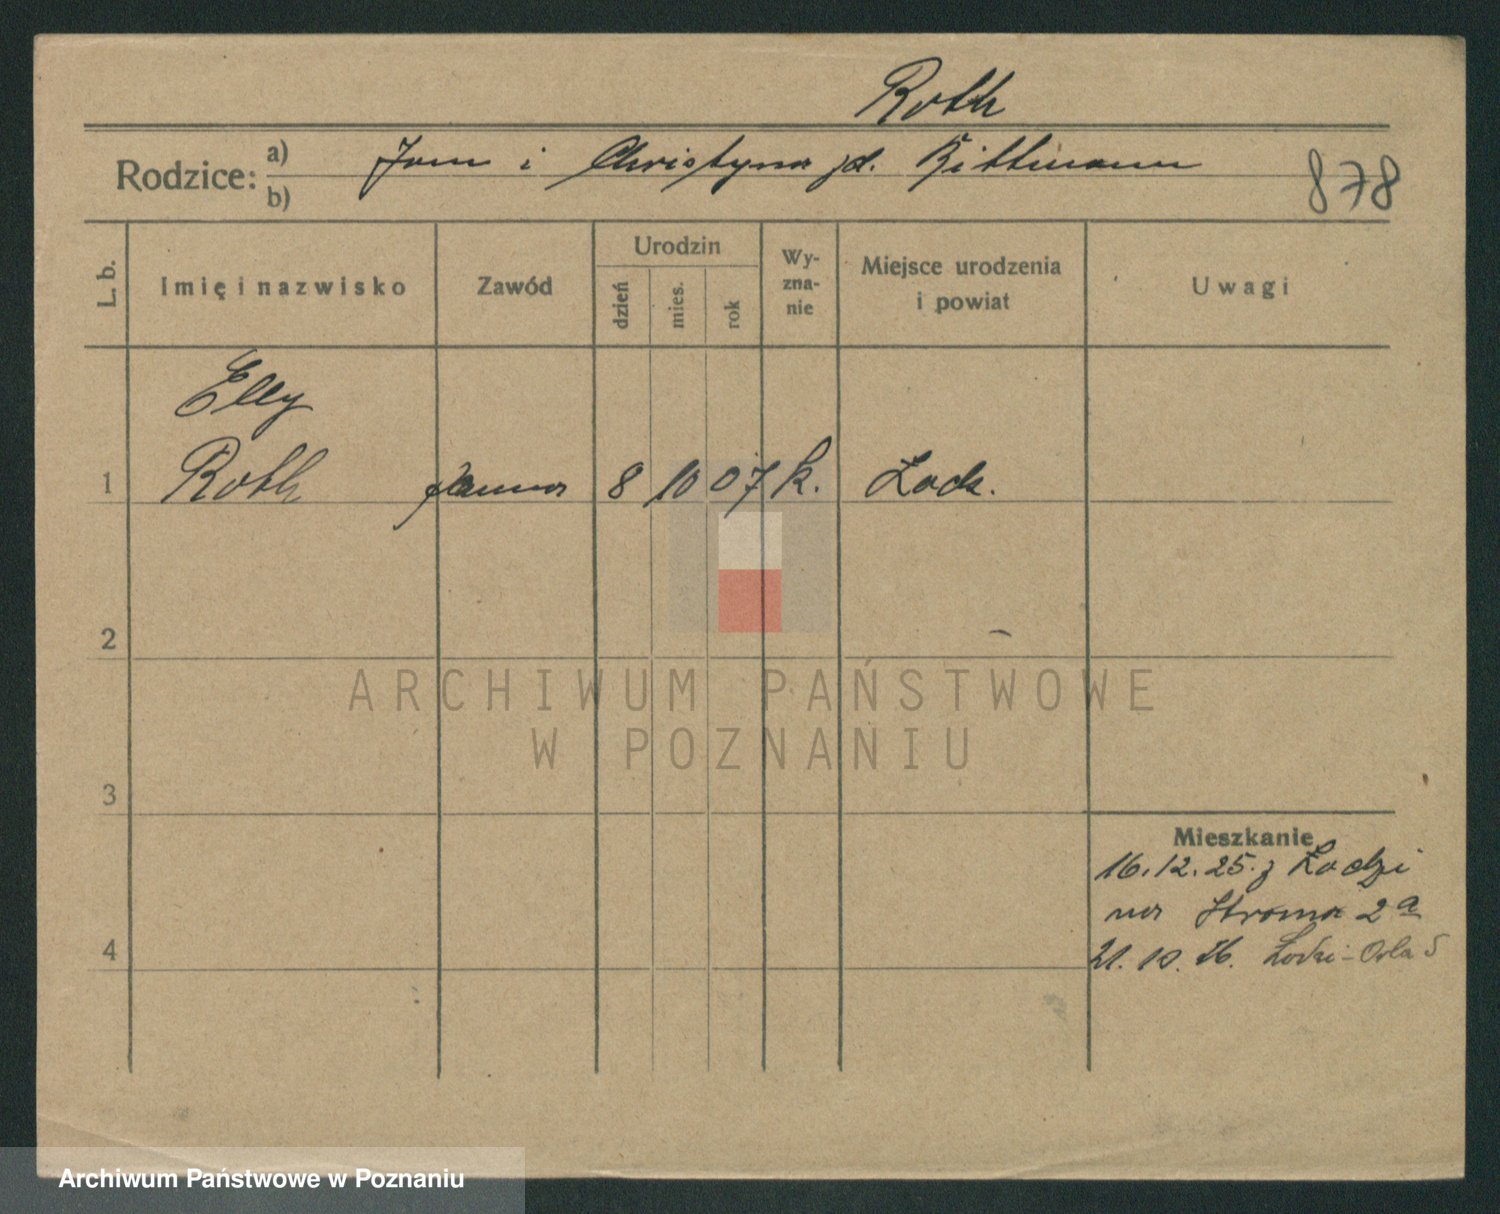 Roth
Rodzice: a) Jan i Christyna zd. Rittmann
b)
878
L. b.
Imię i nazwisko
Zawód
Urodzin
dzień
mies.
rok
Wy-
zna-
nie
Miejsce urodzenia
i powiat
Uwagi
Elly
1 Roth panna 8 10 07 k. Łódź.
2
ARCHIWUM PAŃSTWOWE
W POZNANIU
3
Mieszkanie
16.12.25. z Łodzi
na Stroma 2a
4
21.10.26. Łodzi - Orla 5
Archiwum Państwowe w Poznaniu